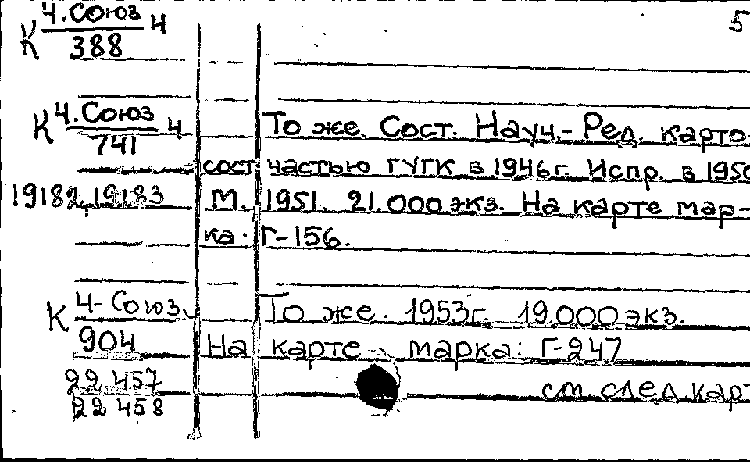 К 4.Союз/388 4 5
К 4.Союз/741 4 То же. Сост. Науч.-Ред. карто-
сост. частью ГУГК в 1946г. Испр. в 1950
19182, 19183 М. 1951. 21.000 экз. На карте мар-
ка: Г-156.
К 4-Союз То же. 1953г. 19.000 экз.
904 На карте марка: Г-247
22 457 см след кар
22 458